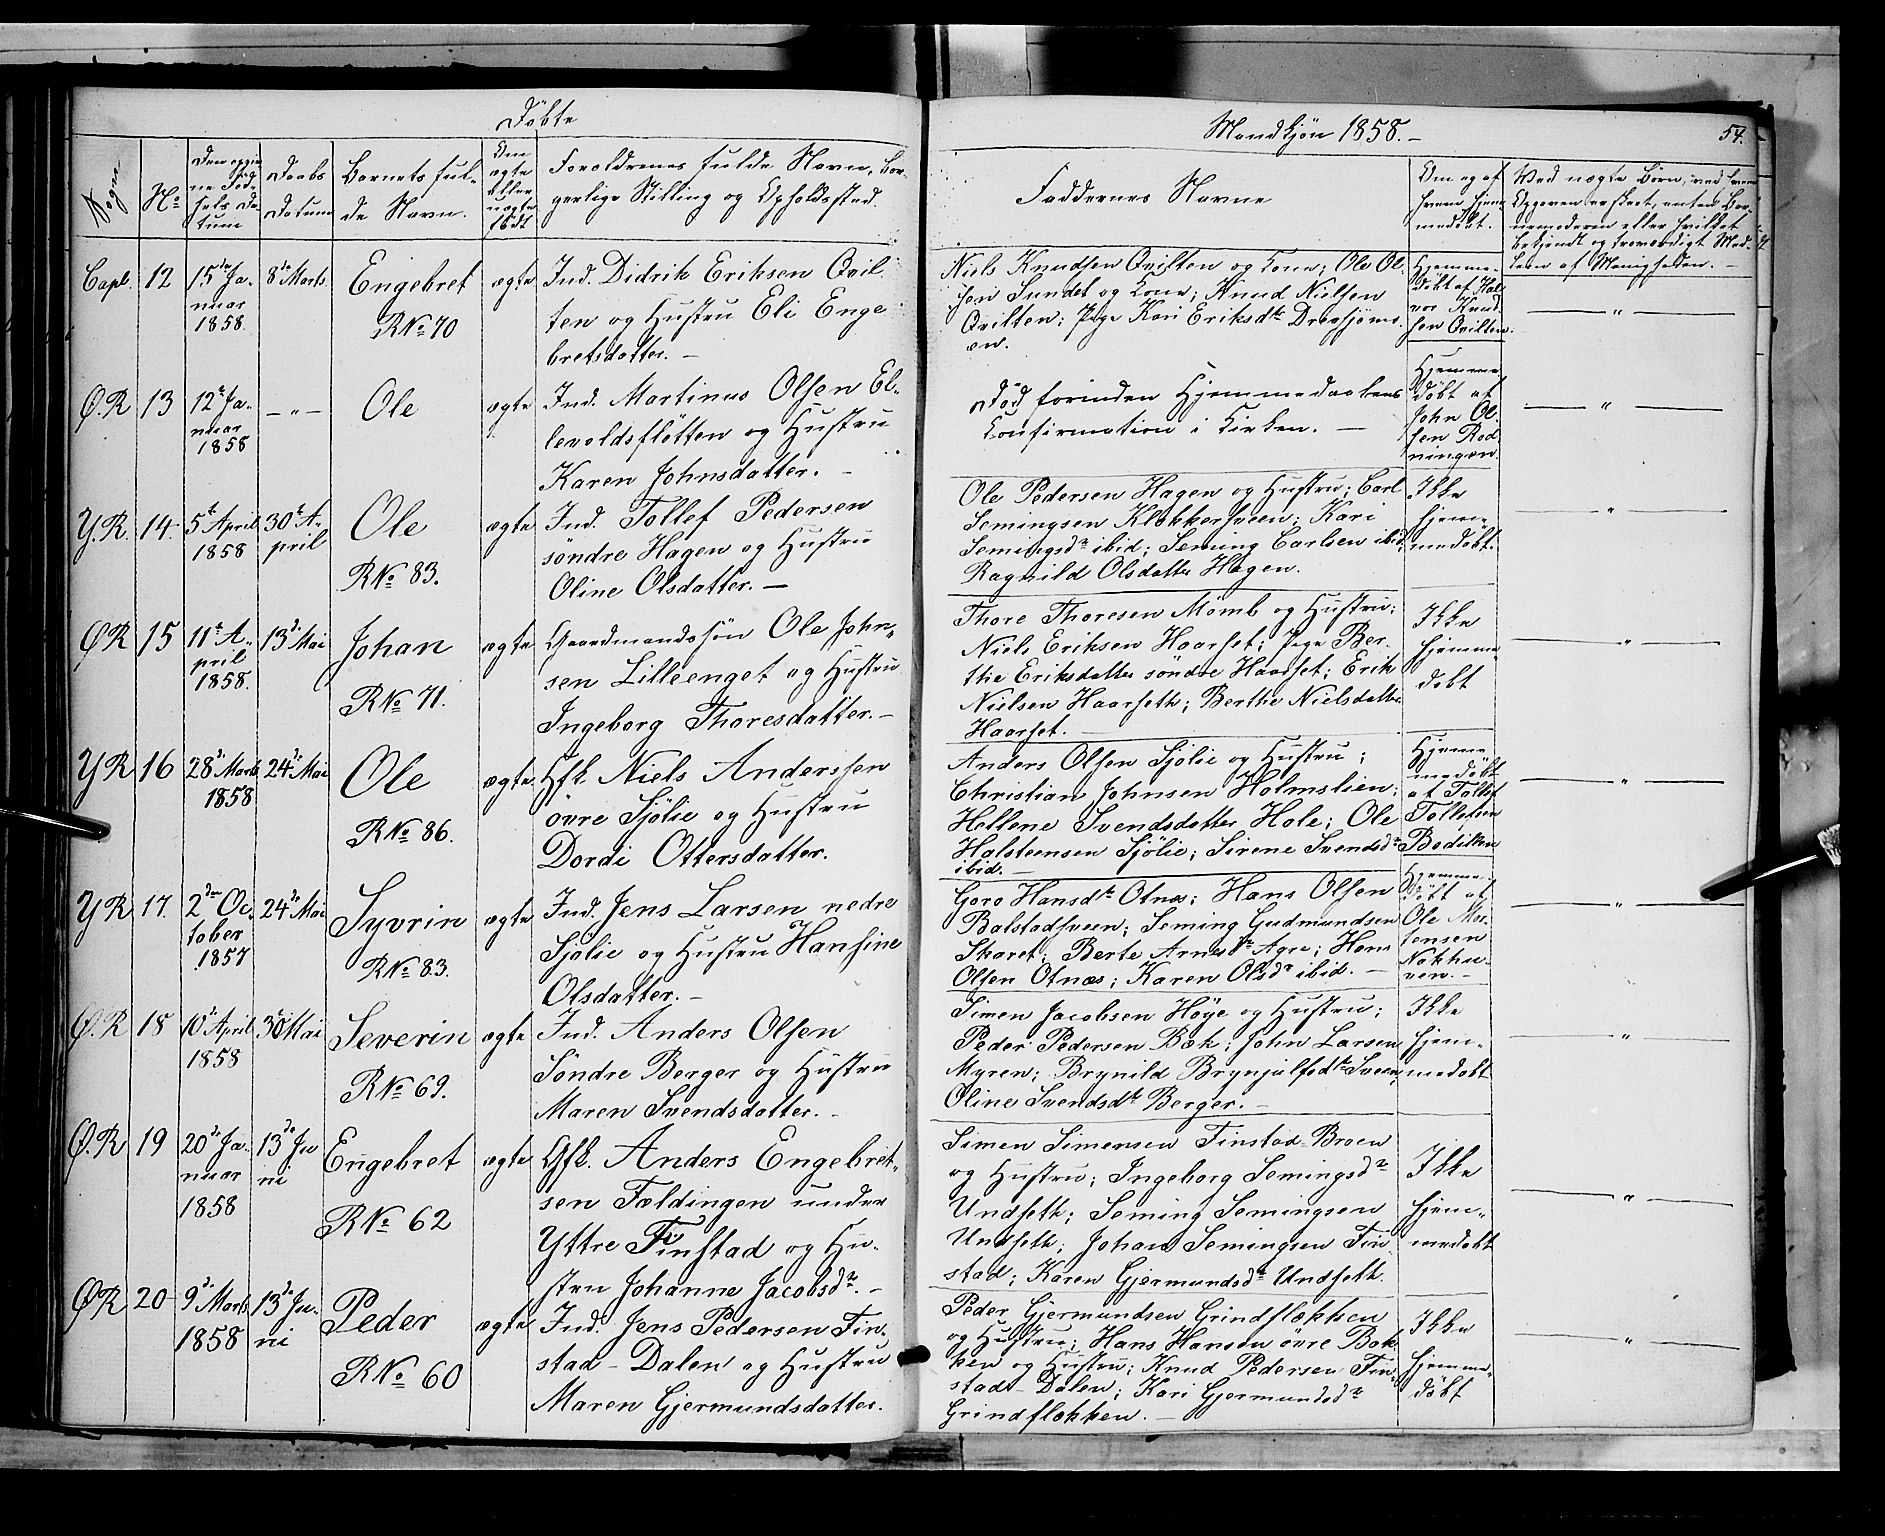 Döbte
Mandkjön 1858.-
54.
Sogn.
No
Den opgivne Födsels Datum
Daabs Datum
Barnets fulde Navn.
Om ægte eller uægte födt
Forældrenes fulde Navn, borgerlige Stilling og Opholdssted.
Faddernes Navne
Om og af hvem hjemmedöbt.
Capl. 12 15de Januar 1858. 8de Marts
Engebret
RNo 70
ægte
Ind. Didrik Eriksen Qvilten og Hustru Eli Engebretsdatter. -
Niels Knudsen Qvisten og Kone; Ole Olsen Sundet og Kone; Knud Nielsen
Qvilten; Pige Kari Eriksdtr Drevsjömoen.
Hjemmedöbt af Halvor Knudsen Qvilten.
Ø.R 13 12te Januar 1858 - " -
Ole
ægte
Ind. Martinus Olsen Ellevoldsfløtten og Hustru
Karen Johnsdatter. -
Död forinden Hjemmedaabens
Konfirmation i Kirken. -
Hjemmedöbt af John Olsen Rødningen.
Y.R. 14. 5te April 1858 30te April
Ole
RNo 83.
ægte
Ind. Tollef Pedersen
söndre Hagen og Hustru
Oline Olsdatter. -
Ole Pedersen Hagen og Hustru; Carl
Semingsen Klokkersveen; Kari
Semingsdr ibid; Seming Carlsen ibid;
Ragnild Olsdatter Hagen.
Ikke hjemmedöbt.
ØR 15 11te April 1858. 13de Mai
Johan
RNo 71.
ægte
Gaardmandssön Ole Johnsen Lilleenget og Hustru
Ingeborg Thoresdatter. -
Thore Thoresen Momb og Hustru;
Niels Eriksen Haarset; Pige Berthe Eriksdatter söndre Haarset; Erik
Nielsen Haarseth; Berthe Nielsdatter
Haarset.
Ikke hjemmedöbt
YR 16 28de Marts 1858 24de Mai
Ole
RNo 86.
ægte
Gfk. Niels Anderssen
övre Sjölie og Hustru
Dordi Ottersdatter.
Anders Olsen Sjölie og Hustru;
Christian Johnsen Holmslien;
Hellene Svendsdatter Hole; Ole
Halsteensen Sjölie; Serene Svendsdr
ibid. -
Hjemmedöbt af Tollef Tollefsen Bodilken
YR 17. 2den October 1857 24de Mai
Syvrin
RNo 83.
ægte
Ind. Jens Larsen nedre
Sjölie og Hustru Hansine
Olsdatter. -
Goro Hansdtr Otnæs; Hans Olsen
Balstadsveen; Seming Gudmundsen
Skaret; Berte Arnesdr Agre; Hans
Olsen Otnæs; Karen Olsdr ibid. -
Hjemmedöbt af Ole Mortensen
Ø.R 18 10de April 1858 30de Mai
Severin
RNo 69.
ægte
Ind. Anders Olsen
Söndre Berger og Hustru
Maren Svendsdatter. -
Simen Jacobsen Höye og Hustru;
Peder Pedersen Bak; John Larsen
Myren; Brynild Brynjulfsdtr Sveen;
Oline Svendsdtr Berger. -
Ikke hjemmedöbt
Ø.R 19 20de Januar 1858 13de Juni
Engebret
RNo 62
ægte
Gfk. Anders Engebretsen Fældingen under
Yttre Finstad og Hustru Johanne Jacobsdr. -
Simen Simensen Finstad-Braen
og Hustru; Ingeborg Semingsdr
Undseth; Seming Semingsen
Undseth; Johan Semingsen Finstad; Karen Gjermundsdtr Undseth.
Ikke hjemmedöbt
ØR 20 9de Marts 1858 13de Juni
Peder
RNo 60
ægte
Ind. Jens Pedersen Finstad-Dalen og Hustru
Maren Gjermundsdatter.
Peder Gjermundsen Grindflækken
og Hustru; Hans Hansen övre Bakken og Hustru; Knud Pedersen Finstad-Dalen; Kari Gjermundsdr
Grindflækken. -
Ikke hjemmedöbt